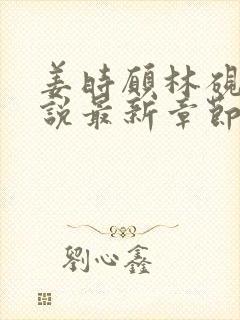 姜時願林硯
說最新章節
劉心鑫